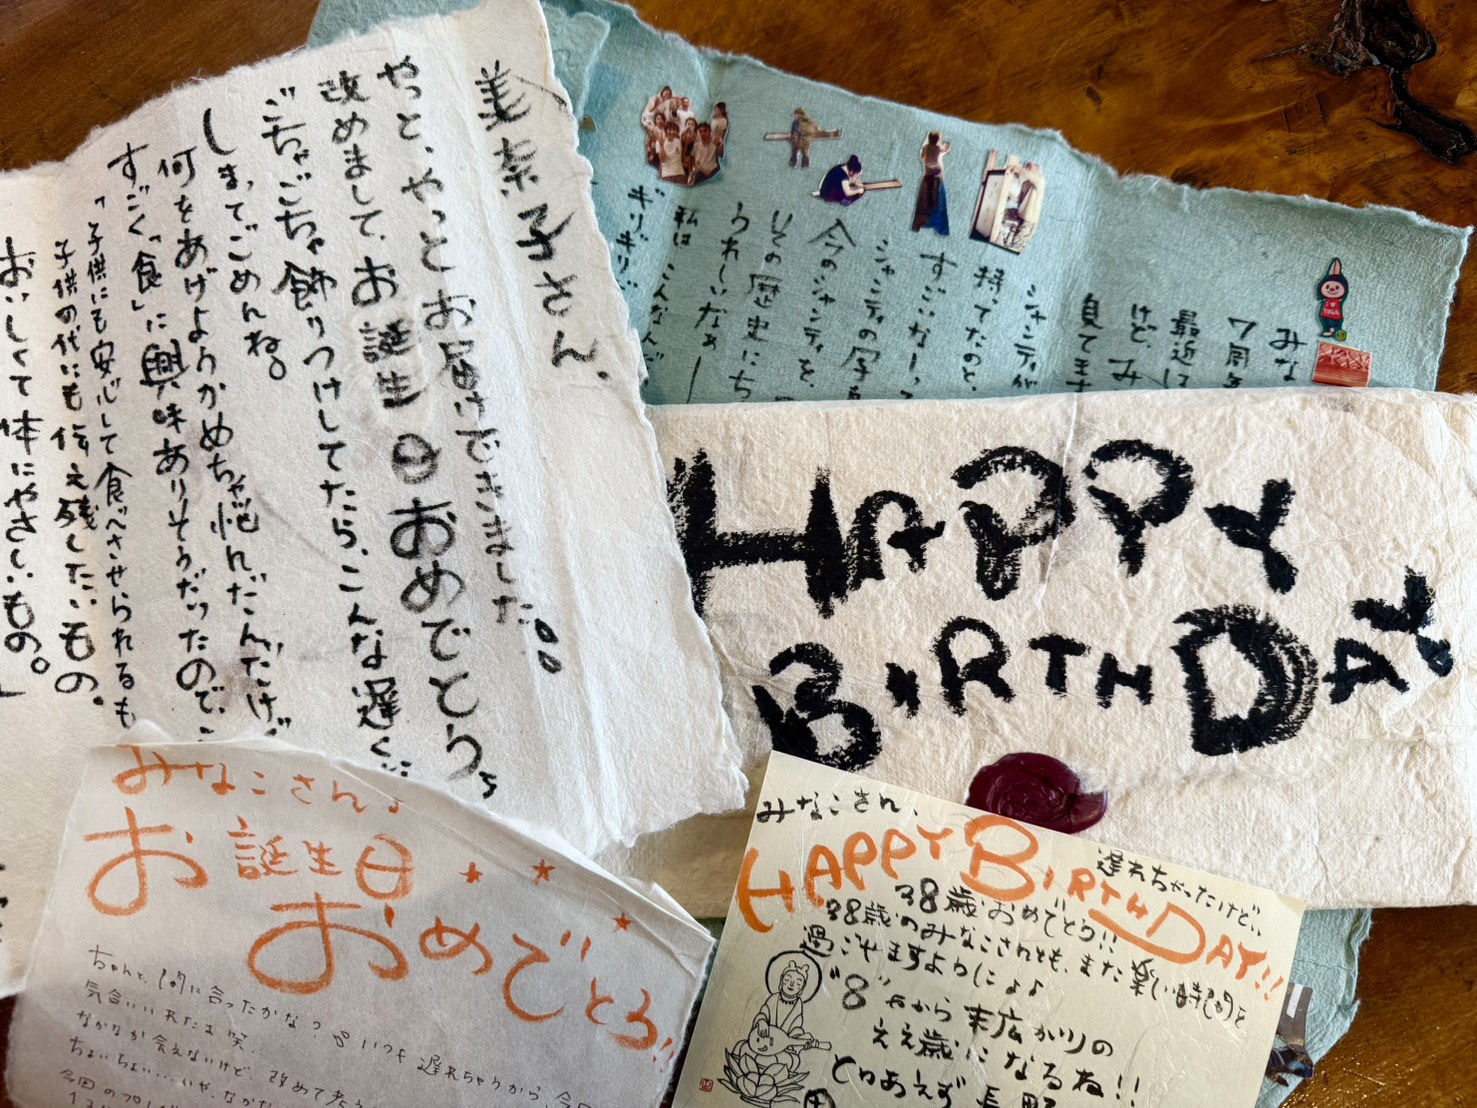 美奈子さん.
やっと、やっとお届けできました。
改めまして、お誕生日おめでとう。
ごちゃごちゃ飾りつけしてたら、こんな遅く
しまってごめんね。
何をあげようかめちゃ悩んだんだけど
すごく「食」に興味ありそうだったので、
「子供にも安心して食べさせられるも
子供の代にも伝え残したいもの。
おいしくて体にやさしいもの。」
みな
7周年
最近は
けど、み
見てます
シャンティが
持ってたのと、
すごいなーって
シャンティの写真
今のシャンティを、
しての歴史にち
うれしいなぁー
私は こんなんで
ギリギリ
I ♥ YOGA
HAPPY
BIRTHDAY
みなこさん♪
お誕生日
おめでとう!!
ちゃんと、1月に言ったかな? いつも遅れちゃうから、今回
気合いいれたよ 笑.
なかなか会えないけど、改めて考
ちょいちょい…いや、なかな
今回のプレゼ
みなこさん、
HAPPY BIRTHDAY!!
遅れちゃったけど、
38歳おめでとう!!
38歳のみなこさんとも、また楽しい時間を
過ごせますように♪
"8"だから末広がりの
ええ歳になるね!!
とりあえず 長野